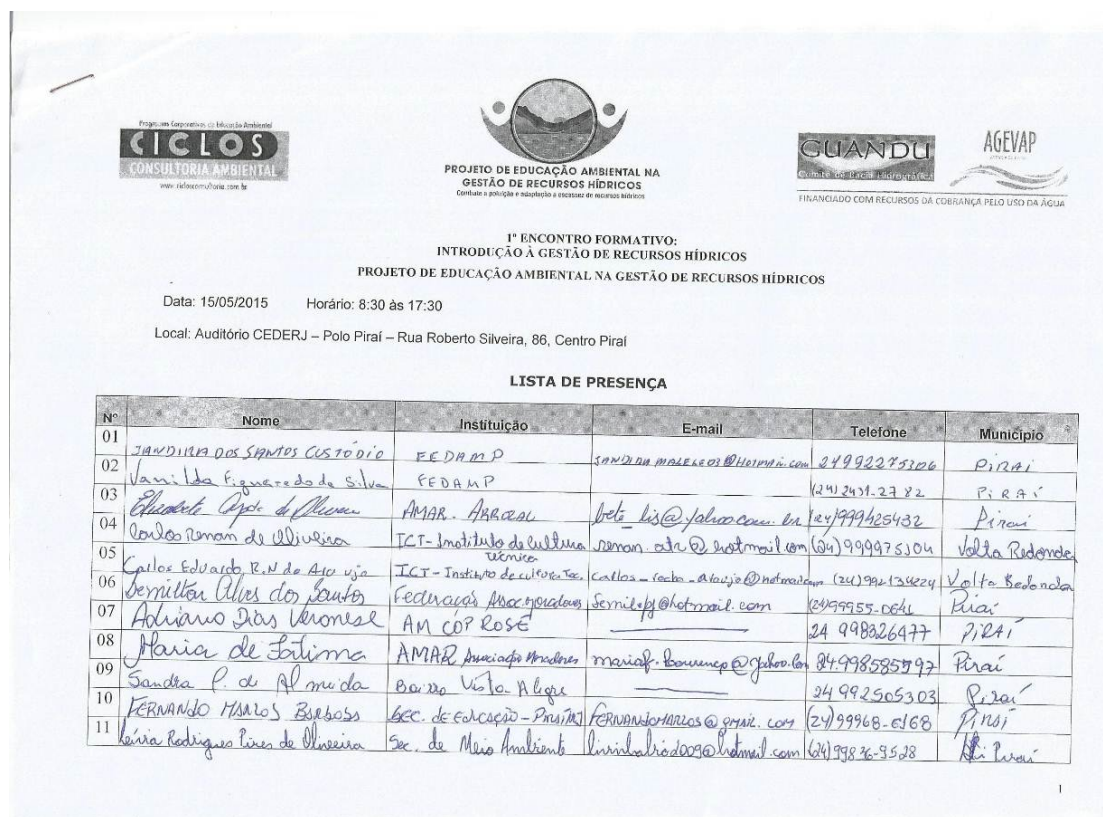 Programas Corporativos de Educação Ambiental
CICLOS
CONSULTORIA AMBIENTAL
www.ciclosconsultoria.com.br
PROJETO DE EDUCAÇÃO AMBIENTAL NA
GESTÃO DE RECURSOS HÍDRICOS
Combate a poluição e adaptação a escassez de recursos hídricos
GUANDU
Comitê de Bacia Hidrográfica
AGEVAP
FINANCIADO COM RECURSOS DA COBRANÇA PELO USO DA ÁGUA
1º ENCONTRO FORMATIVO:
INTRODUÇÃO À GESTÃO DE RECURSOS HÍDRICOS
PROJETO DE EDUCAÇÃO AMBIENTAL NA GESTÃO DE RECURSOS HÍDRICOS
Data: 15/05/2015 Horário: 8:30 às 17:30
Local: Auditório CEDERJ – Polo Piraí – Rua Roberto Silveira, 86, Centro Piraí
LISTA DE PRESENÇA
Nº Nome Instituição E-mail Telefone Município
01 JANDIRA DOS SANTOS CUSTÓDIO FEDAMP 24992275306 PIRAÍ
02 Vanilda Figueredo da Silva FEDAMP (24) 2431-2782 PIRAÍ
03 de Oliveira AMAR. ARROZAL (24)999425432 Piraí
04 Carlos Renan de Oliveira ICT-Instituto de Cultura Técnica renan.atr@hotmail.com (24)999975304 Volta Redonda
05 Carlos Eduardo R.N de Araujo ICT-Instituto de cultura Tec. (24)992134224 Volta Redonda
06 Semilton Alves dos Santos Federação Assoc. Moradores (24)99955-0641 Piraí
07 Adriano Dias Veronese AM COP ROSE 24 998326477 PIRAÍ
08 Maria de Fátima AMAR Associação Moradores 24.998585597 Piraí
09 Sandra P. de Almeida Bairro Vista Alegre 24 992505303 Piraí
10 FERNANDO MARCOS BARBOSA SEC. DE EDUCAÇÃO - PIRAÍ FERNANDOMARCOS@GMAIL.COM (24)99968-6168 PIRAÍ
11 Rodrigues Pires de Oliveira Sec. de Meio Ambiente (24)99836-9528 Piraí
1